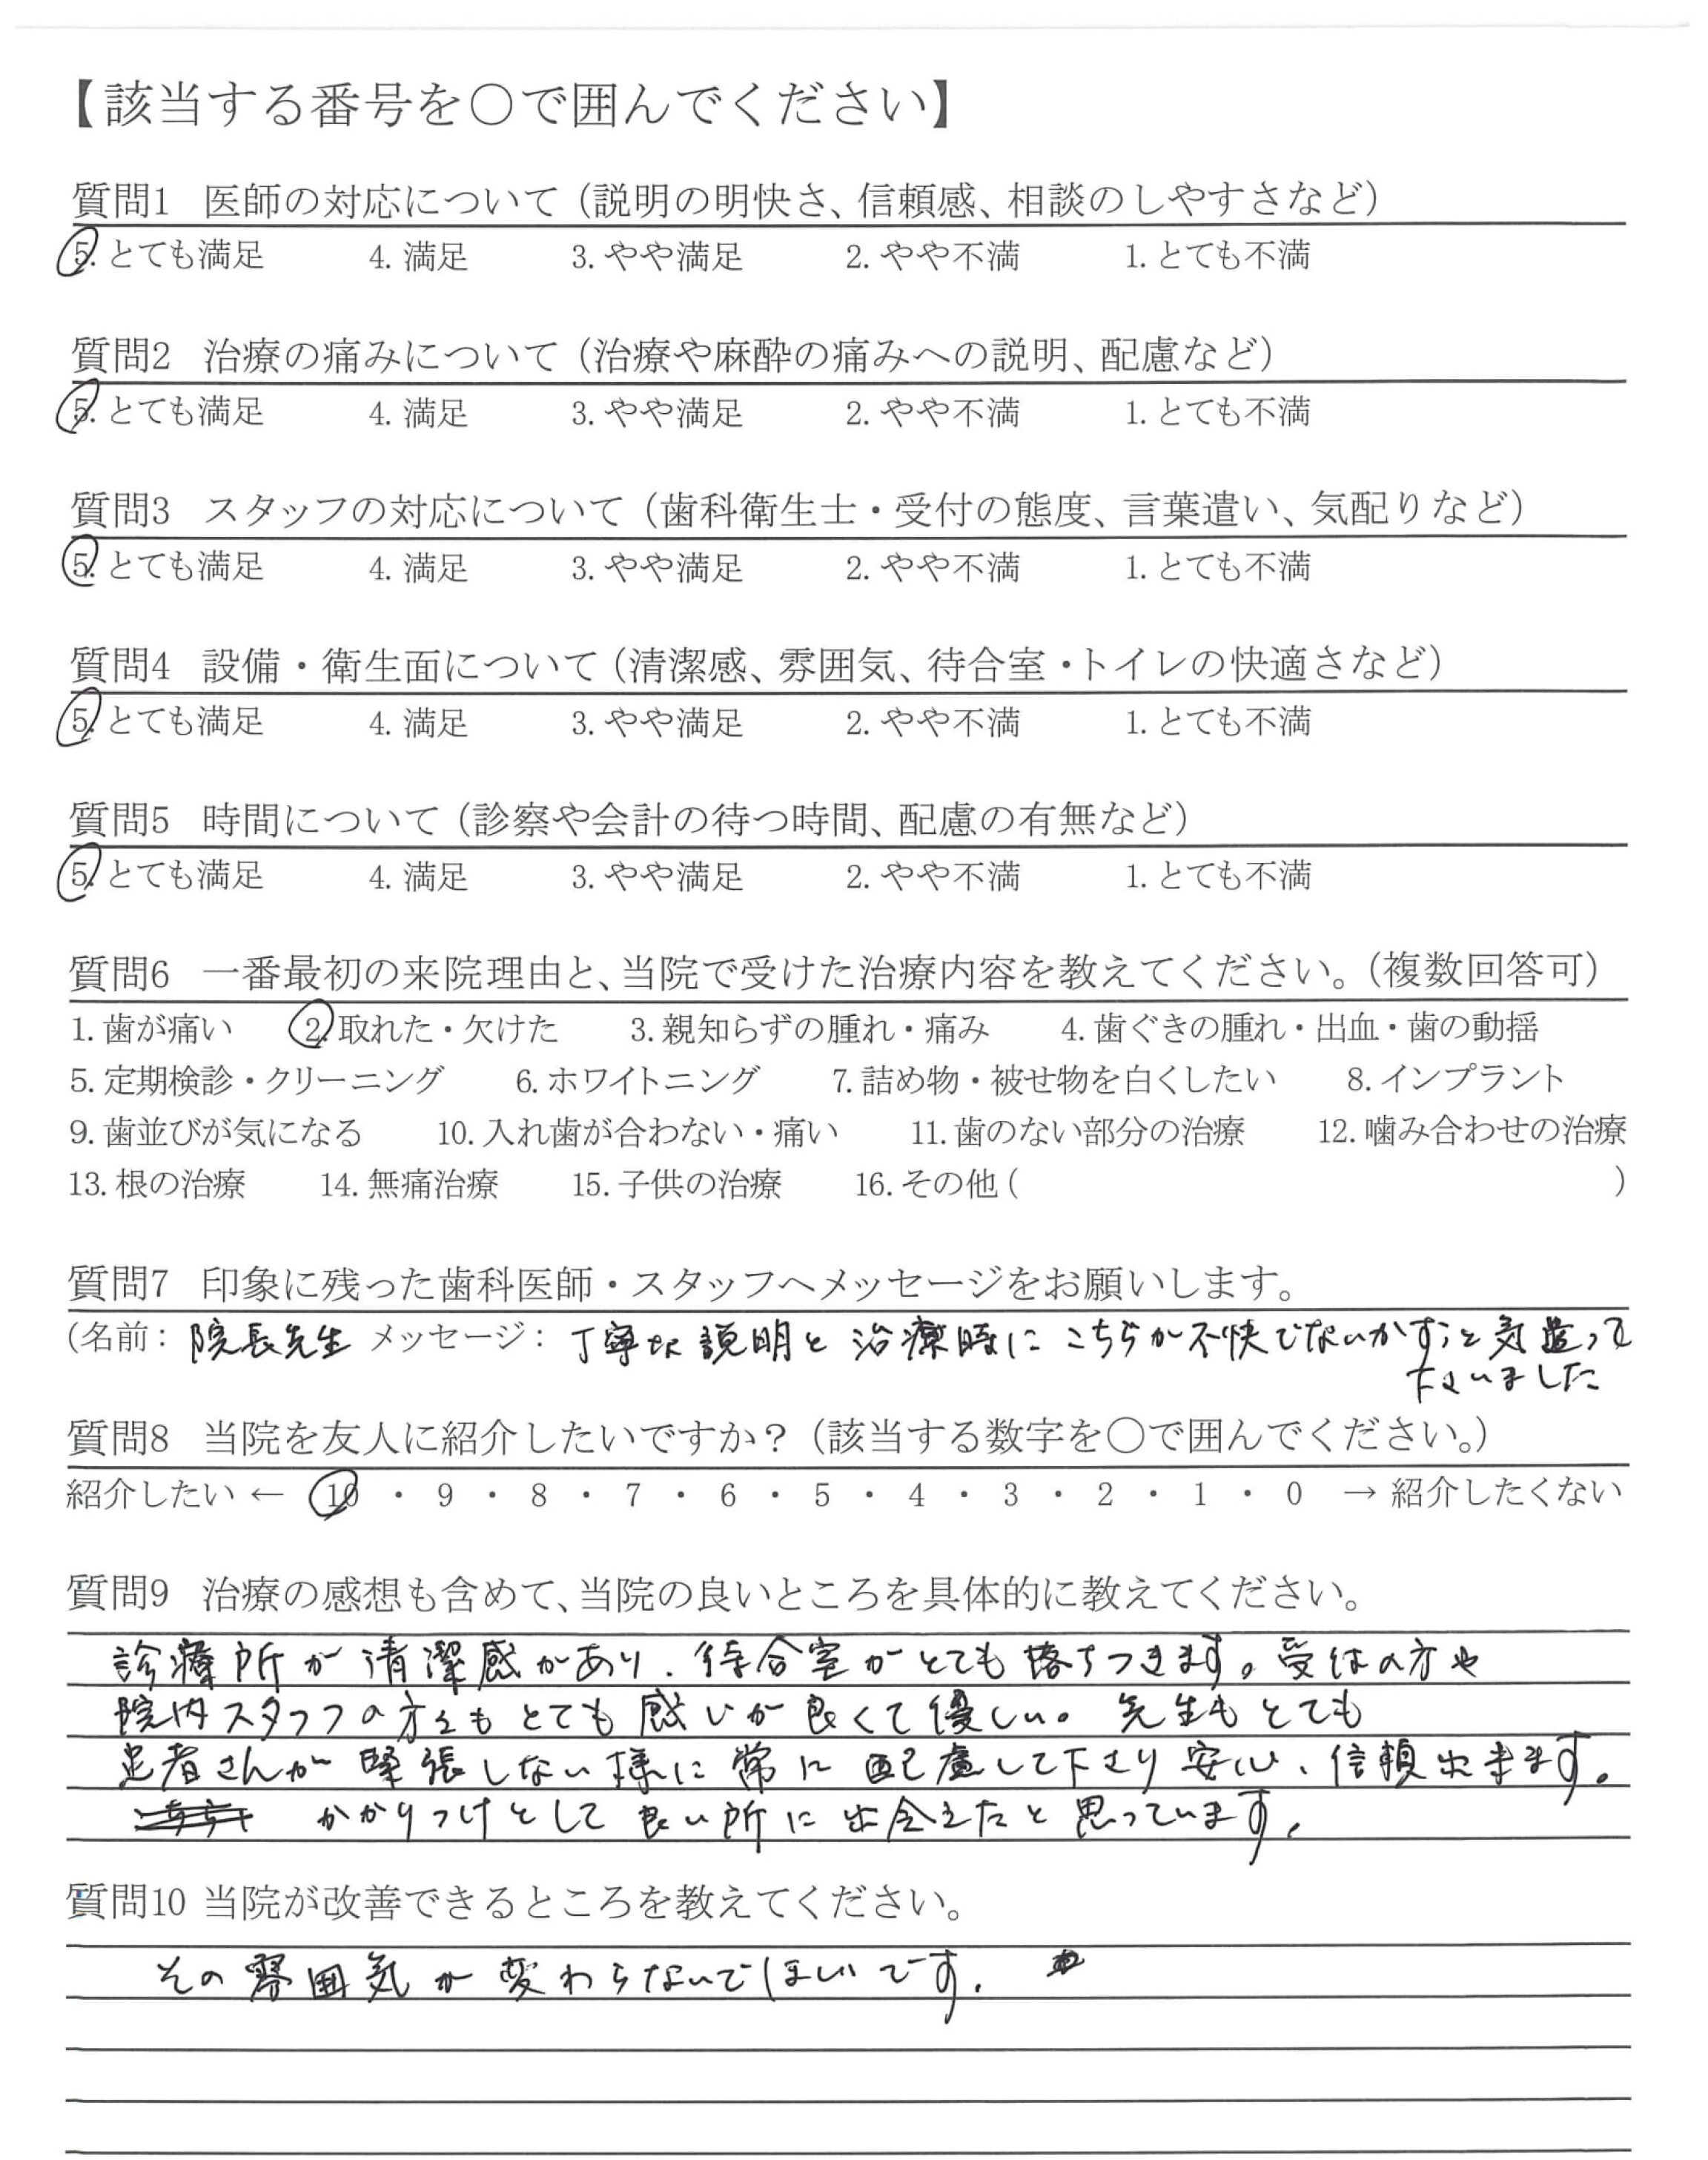 【該当する番号を〇で囲んでください】
質問1 医師の対応について（説明の明快さ、信頼感、相談のしやすさなど）
5. とても満足 4. 満足 3. やや満足 2. やや不満 1. とても不満
質問2 治療の痛みについて（治療や麻酔の痛みへの説明、配慮など）
5. とても満足 4. 満足 3. やや満足 2. やや不満 1. とても不満
質問3 スタッフの対応について（歯科衛生士・受付の態度、言葉遣い、気配りなど）
5. とても満足 4. 満足 3. やや満足 2. やや不満 1. とても不満
質問4 設備・衛生面について（清潔感、雰囲気、待合室・トイレの快適さなど）
5. とても満足 4. 満足 3. やや満足 2. やや不満 1. とても不満
質問5 時間について（診察や会計の待つ時間、配慮の有無など）
5. とても満足 4. 満足 3. やや満足 2. やや不満 1. とても不満
質問6 一番最初の来院理由と、当院で受けた治療内容を教えてください。（複数回答可）
1. 歯が痛い 2. 取れた・欠けた 3. 親知らずの腫れ・痛み 4. 歯ぐきの腫れ・出血・歯の動揺
5. 定期検診・クリーニング 6. ホワイトニング 7. 詰め物・被せ物を白くしたい 8. インプラント
9. 歯並びが気になる 10. 入れ歯が合わない・痛い 11. 歯のない部分の治療 12. 噛み合わせの治療
13. 根の治療 14. 無痛治療 15. 子供の治療 16. その他 ( )
質問7 印象に残った歯科医師・スタッフへメッセージをお願いします。
（名前： 院長先生 メッセージ： 丁寧な説明と治療時にこちらが不快でないかずっと気遣って
下さいました
質問8 当院を友人に紹介したいですか？（該当する数字を〇で囲んでください。）
紹介したい ← 10 ・ 9 ・ 8 ・ 7 ・ 6 ・ 5 ・ 4 ・ 3 ・ 2 ・ 1 ・ 0 → 紹介したくない
質問9 治療の感想も含めて、当院の良いところを具体的に教えてください。
診療所が清潔感があり、待合室がとても落ちつきます。受付の方や
院内スタッフの方々もとても感じが良くて優しい。先生もとても
患者さんが緊張しない様に常に配慮して下さり安心、信頼出来ます。
かかりつけとして良い所に出会えたと思っています。
質問10 当院が改善できるところを教えてください。
その雰囲気が変わらないでほしいです。